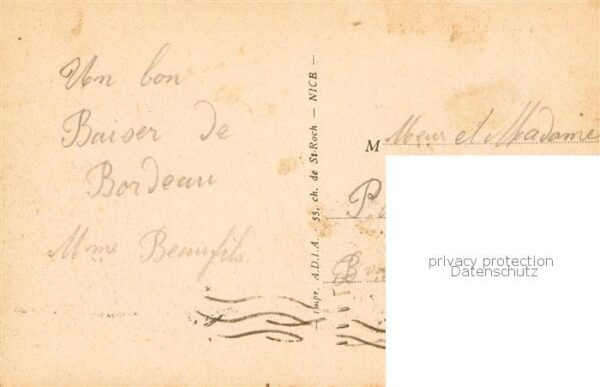 Un bon
Baiser de
Bordeau
Mme Beaufils
— Impr. A.D.I.A. 55, ch. de St-Roch — NICE —
M Mieur et Madame
P
privacy protection
Datenschutz